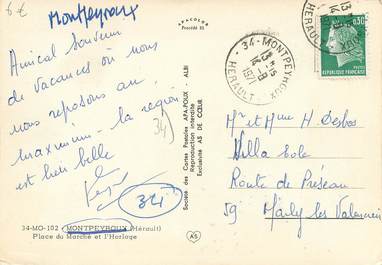 6 €
Montpeyroux
APACOLOR
Amical Souvenir
de Vacances où nous
nous reposons au
maximum - la région
est bien belle
34
34
34-MO-102 - MONTPEYROUX (Hérault)
Place du Marché et l'Horloge
Société des Cartes Postales APA-POUX - ALBI
Reproduction interdite
Exclusivité AS DE CŒUR
AS
34 - MONTPEYROUX
1971
HERAULT
0,30
REPUBLIQUE FRANÇAISE
Mr et Mme H
Villa
Route de Préseau
59 Marly les Valencien